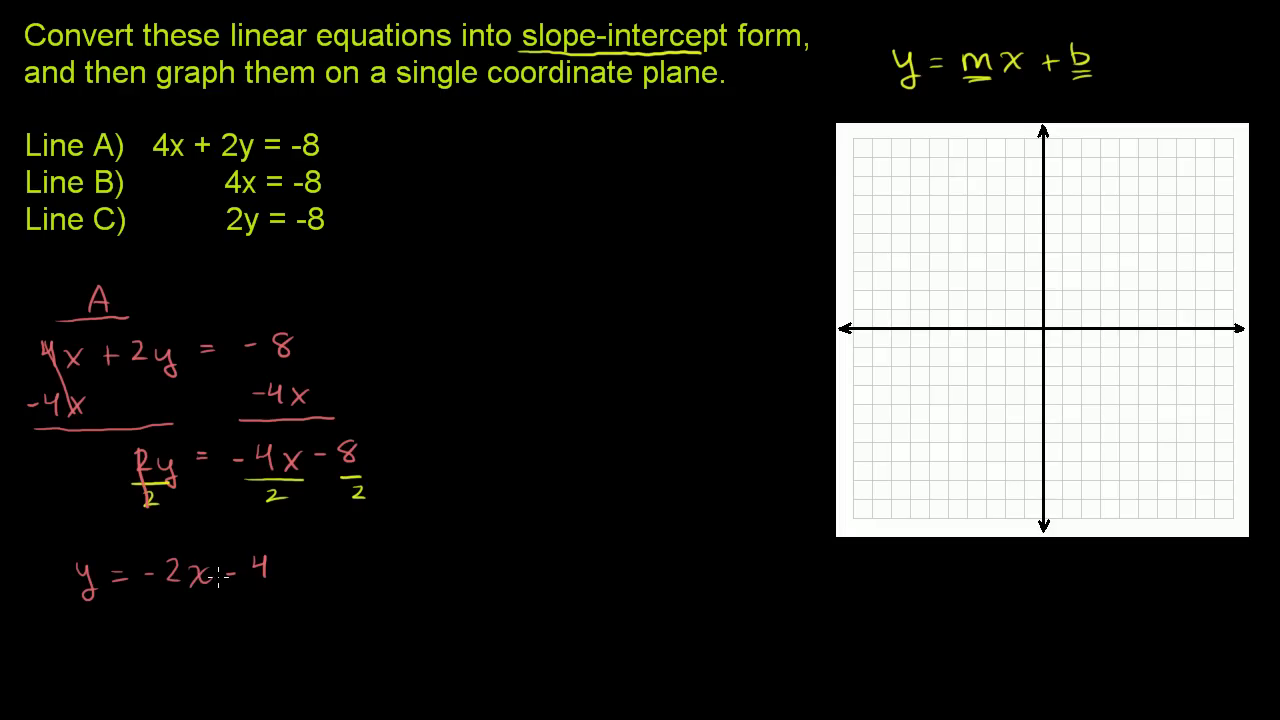 Convert these linear equations into slope-intercept form,
and then graph them on a single coordinate plane.
y = mx + b
Line A) 4x + 2y = -8
Line B) 4x = -8
Line C) 2y = -8
A
4x + 2y = - 8
-4x -4x
2y = -4x - 8
2 2 2
y = -2x - 4